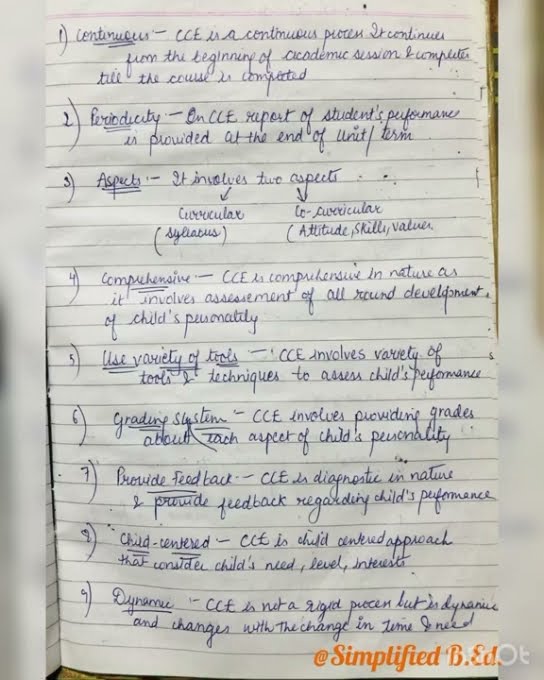 1) Continuous - CCE is a continuous process It continues
from the beginning of academic session & completes
till the course is completed
2) Periodicity - On CCE report of student's performance
is provided at the end of unit/term
3) Aspects :- It involves two aspects
Curricular Co-curricular
(Syllabus) (Attitude, Skills, Values
4) Comprehensive - CCE is comprehensive in nature as
it involves assessement of all round development
of child's personality
5) Use variety of tools - CCE involves variety of
tools & techniques to assess child's performance
6) Grading System - CCE involves providing grades
about each aspect of child's personality
7) Provide Feedback - CCE is diagnostic in nature
& provide feedback regarding child's performance
8) Child-centered - CCE is child centered approach
that consider child's need, level, interests
9) Dynamic :- CCE is not a rigid process but is dynamic
and changes with the change in time & need
@Simplified B.Ed.